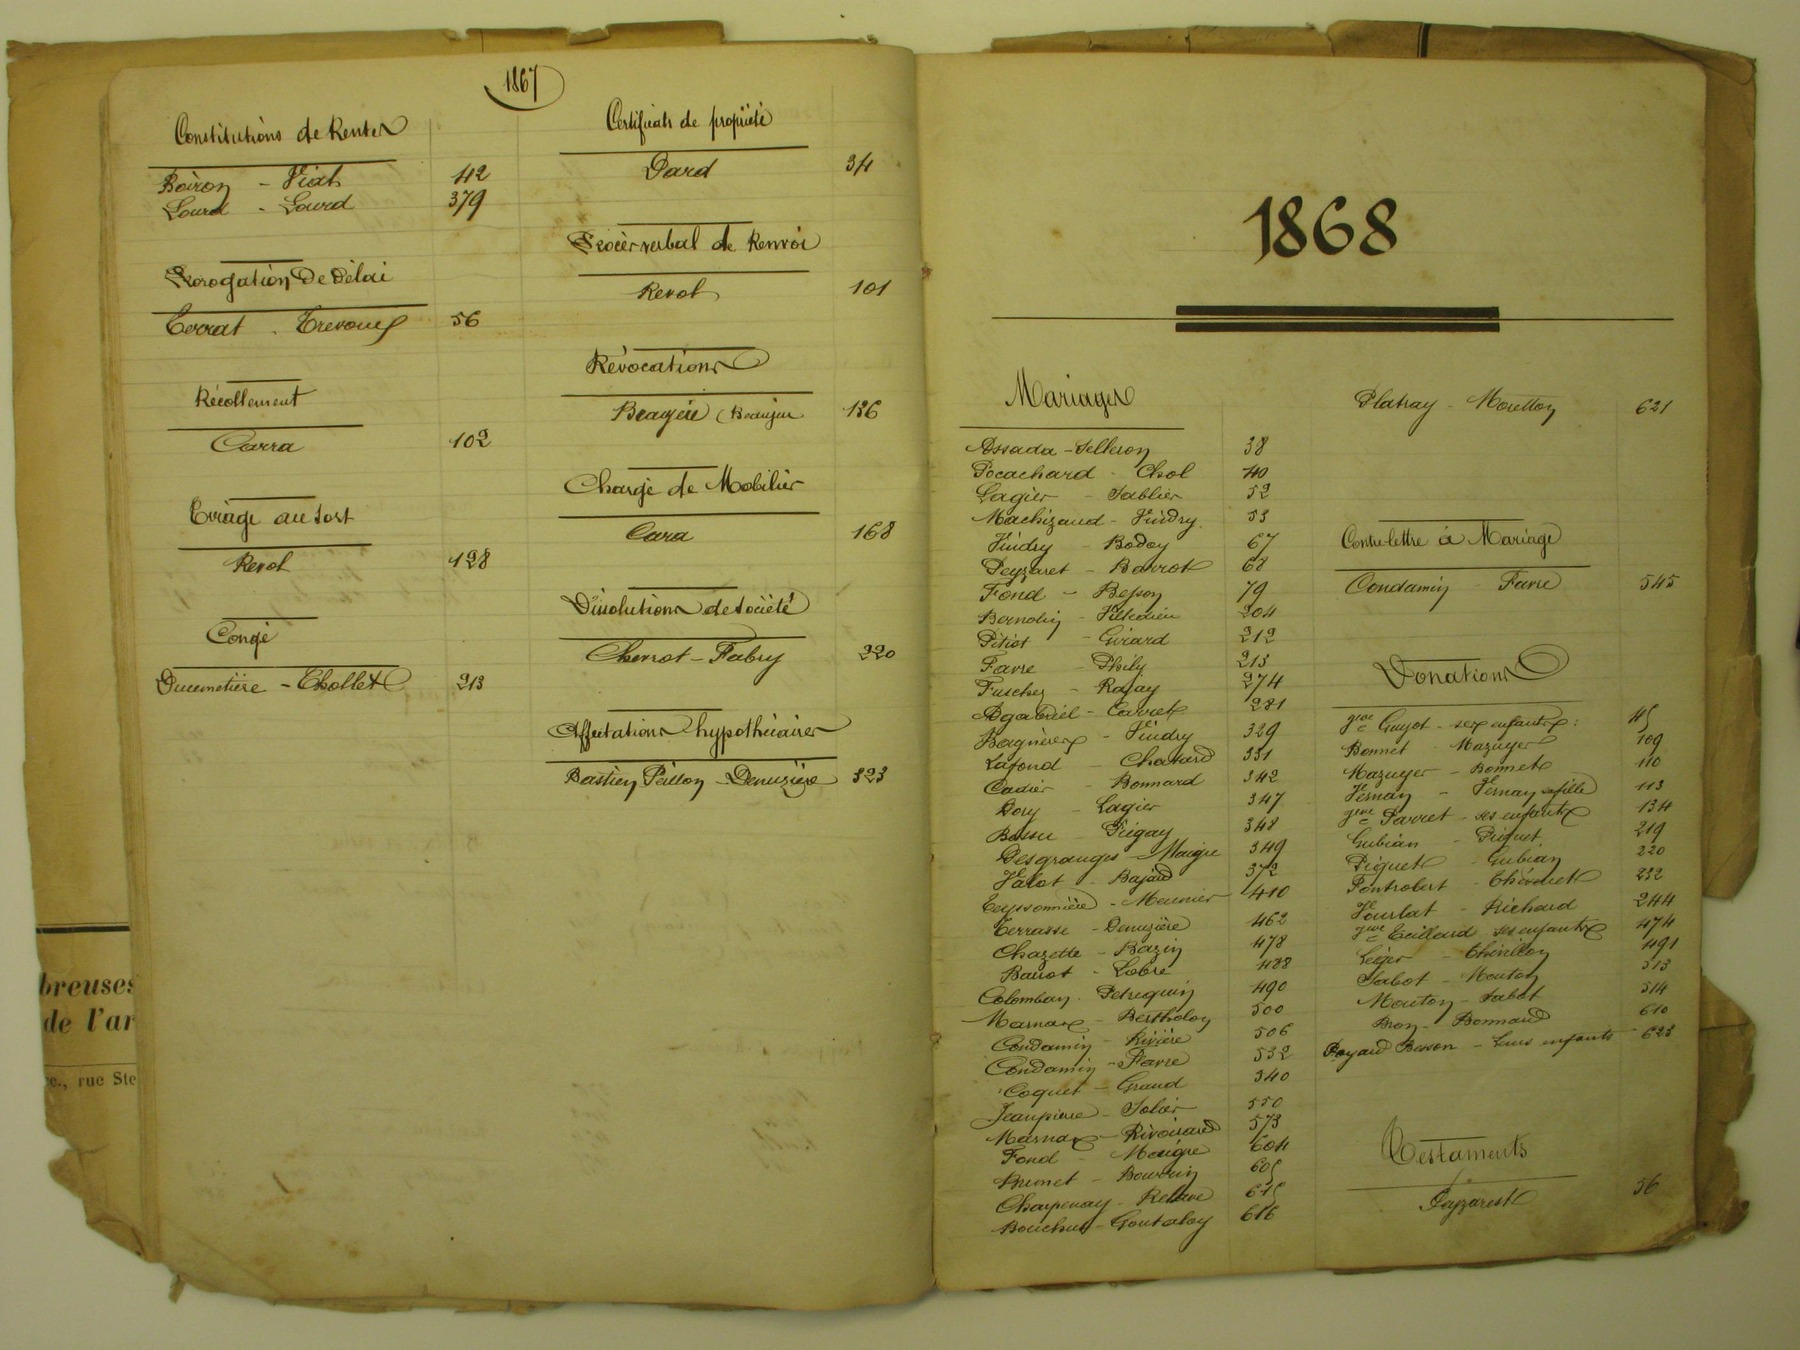 1867
Constitutions de Rentes
Boiron - Viat 42
Lourd - Lourd 379
Prorogation De Délai
Terrat - Trevoux 56
Récollement
Carra 102
Tirage au Sort
Revol 128
Congé
Ducimetière - Chollet 213
Certificats de propriété
Dard 34
Procès verbal de Renvoi
Revol 101
Révocations
Beaujeu 136
Charge de Mobilier
Cara 168
Dissolutions de Société
Chervot - Fabry 220
Affectations hypothécaires
Bastien Peillon - Denuzière 323
breuses
de l'ar
ce., rue Ste
1868
Mariages
Assada - Selleron 38
Pocachard - Chol 40
Lagier - Sablier 52
Machizaud - Vindry 53
Vindry - Bodoy 67
Peyzaret - Barrot 68
Fond - Besson 79
Bernolin - Villedieu 204
Pitiot - Girard 212
Favre - Phily 213
Fuschez - Rajay 274
Agabriel - Carret 281
Bagnères - Vindry 329
Lafond - Chatard 331
Cadier - Bonnard 342
Bory - Lagier 347
Bossu - Prigay 348
Desgranges - Maigre 349
Valot - Bajard 372
Teyssonnière - Meunier 410
Terrasse - Denuzière 462
Chazette - Bazin 478
Barrot - Labre 488
Colomban - Petrequin 490
Marnas - Bertholon 500
Condamin - Rivière 506
Condamin - Favre 532
Coquet - Graud 540
Jeanpierre - Solier 550
Marnas - Rivoirard 573
Fond - Maigre 604
Brunet - Bourrin 605
Charpenay - Relave 615
Bouchut - Goutaloy 616
Platray - Moretton 621
Contre-lettre à Mariage
Condamin - Favre 545
Donations
Guyot - ses enfants 45
Bonnet - Mazuyer 109
Mazuyer - Bonnet 110
Vernay - Vernay sa fille 113
Parret - ses enfants 134
Gubian - Piquet 219
Piquet - Gubian 220
Pontrobert - Chevenet 232
Vourlat - Richard 244
Guillard ses enfants 474
Léger - Thivillon 491
Sabot - Mouton 513
Mouton - Sabot 514
Bron - Bonnard 610
Payaud Besson - leurs enfants 623
Testaments
Payzaret 56